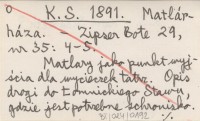 o K. S. 1891. Matlár-
háza. - Zipser Bote 29,
nr 35: 4-5.
Matlary jako punkt wyj-
ścia dla wycieczek tatrz. Opis
drogi do Łomnickiego Stawu,
gdzie jest potrzebne schronisko.